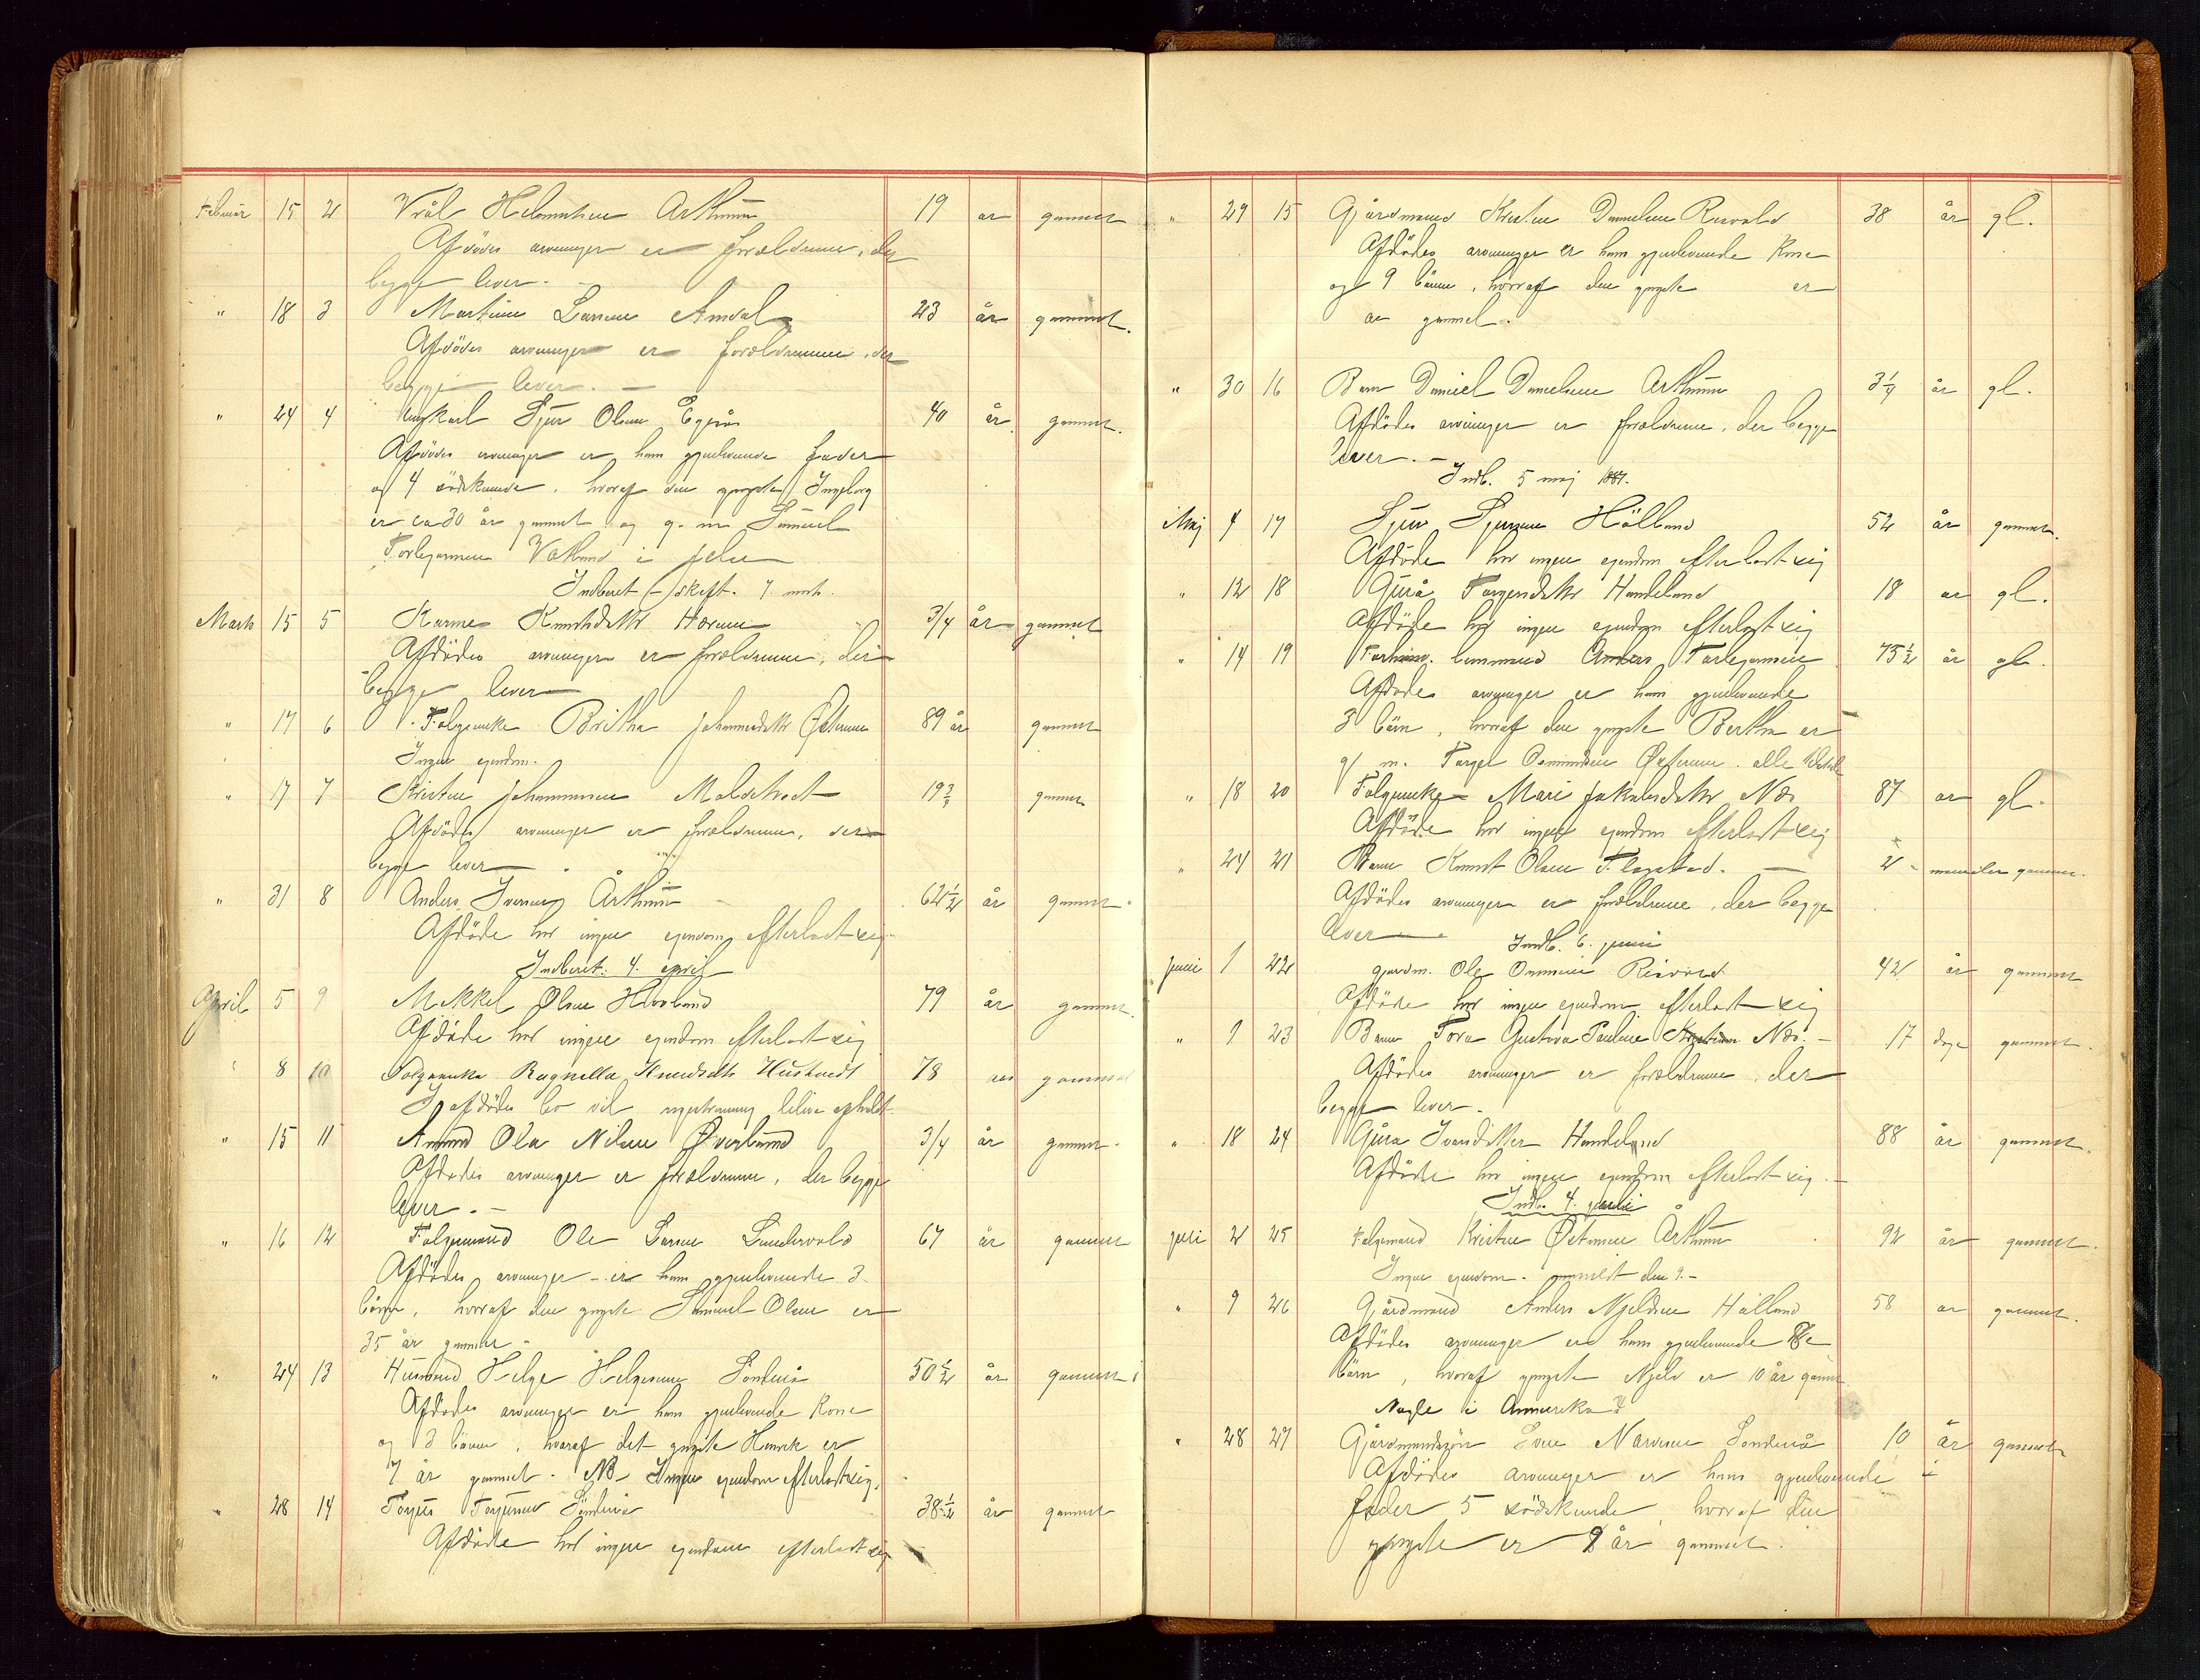 Februar 15 2 Vrål Helmichsen Årthun 19 år gammel
Afdödes arvinger er forældrene, der
begge lever. -
" 18 3 Martin Larsen Amdal 23 år gammel.
Afdödes arvinger er forældrene, der
begge lever. -
" 24 4 Ungkarl Sjur Olsen 40 år gammel.
Afdödes arvinger er, hans gjenlevende fader
og 4 södskende, hvoraf den yngste Ingeborg
er ca 30 år gammel og g. m. Samuel
Torbjørnsen Vatland i Jelse
Indberet (-) skift. 7. mars.
Marts 15 5 Karine Knudsdtr 3/4 år gammel
Afdödes arvinger er forældrene, der
begge lever
" 17 6 Folgeenke Britha Johannesdtr 89 år gammel
Ingen ejendom.
" 17 7 Kristen Johannesen 19 3/4 gammel
Afdödes arvinger er forældrene, der
begge lever.
" 31 8 Anders Iversen Årthun 62 1/2 år gammel.
Afdöde har ingen ejendom efterladt sig.
Indberet. 4. april
April 5 9 Mikkel Olsen Hovland 79 år gammel.
Afdöde har ingen ejendom efterladt sig
" 8 10 Folgeenke Ragnilla Knudsdtr 78 aar gammel
I afdödes bo vil
" 15 11 Ola Nilsen Øverland 3/4 år gammel.
Afdödes arvinger er forældrene, der begge
lever. -
" 16 12 Folgemand Ole Larsen 67 år gammel
Afdödes arvinger - er hans gjenlevende 3
börn, hvoraf den yngste Samuel Olsen er
35 år gammel.
" 24 13 Husmand Helge Helgesen Söndenå 50 1/2 år gammel
Afdödes arvinger er hans gjenlevende kone
og 3 börn, hvoraf det yngste Henrik er
7 år gammel. NB Ingen ejendom efterladt sig.
" 28 14 Torjus Torjusen Söndenå 38 1/2 år gammel
Afdöde har ingen ejendom efterladt sig
" 29 15 Gjårdmand Kristen Danielsen Risvold 38 år gl.
Afdödes arvinger er hans gjenlevende kone
og 9 börn, hvoraf den yngste er
år gammel.
" 30 16 Barn Daniel Danielsen Årthun 3 1/4 år gl.
Afdödes arvinger er forældrene, der begge
lever. -
Indb. 5 maj 1887.
Maj 4 17 Sjur Sjursen Hålland 52 år gammel.
Afdöde har ingen ejendom efterladt sig
" 12 18 Guro Torgersdtr Handeland 18 år gl.
Afdöde har ingen ejendom efterladt sig
" 14 19 Anders Torbjørnsen 75 1/2 år gl.
Afdödes arvinger er hans gjenlevende
3 börn, hvoraf den yngste Bertha er
g. m. Torgel alle
" 18 20 Folgeenke Mari Jakobsdtr Næs 87 år gl.
Afdöde har ingen ejendom efterladt sig
" 24 21 Barn Knut Olsen Flogstad. - 2 - måneder gammel.
Afdödes arvinger er forældrene, der begge
lever
Indb. 6. juni
Juni 1 22 gjårdm. Ole Risvold 42 år gammel
Afdöde har ingen ejendom efterladt sig
" 9 23 Barn Tora Gustava Pauline Næs. - 17 dage gammel.
Afdödes arvinger er forældrene, der
begge lever.
" 18 24 Guro Ivarsdatter Handeland 88 år gammel.
Afdöde har ingen ejendom efterladt sig. -
Indb. 4. juli
juli 2 25 Folgemand Kristen Østensen Årthun 92 år gammel.
Ingen ejendom. anmeldt den 9. -
" 9 26 Gjårdmand Anders Njeldsen Hålland 58 år gammel.
Afdödes arvinger er hans gjenlevende
börn, hvoraf yngste Njeld er 10 år gammel.
Nogle i Amerika
" 28 27 Gjårdmandssön Sven Söndenå 10 år gammel
Afdödes arvinger er hans gjenlevende
fader 5 södskende, hvoraf den
yngste er 2 år gammel.